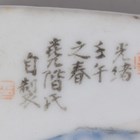 光緒
壬午
之春
堯階氏
自製